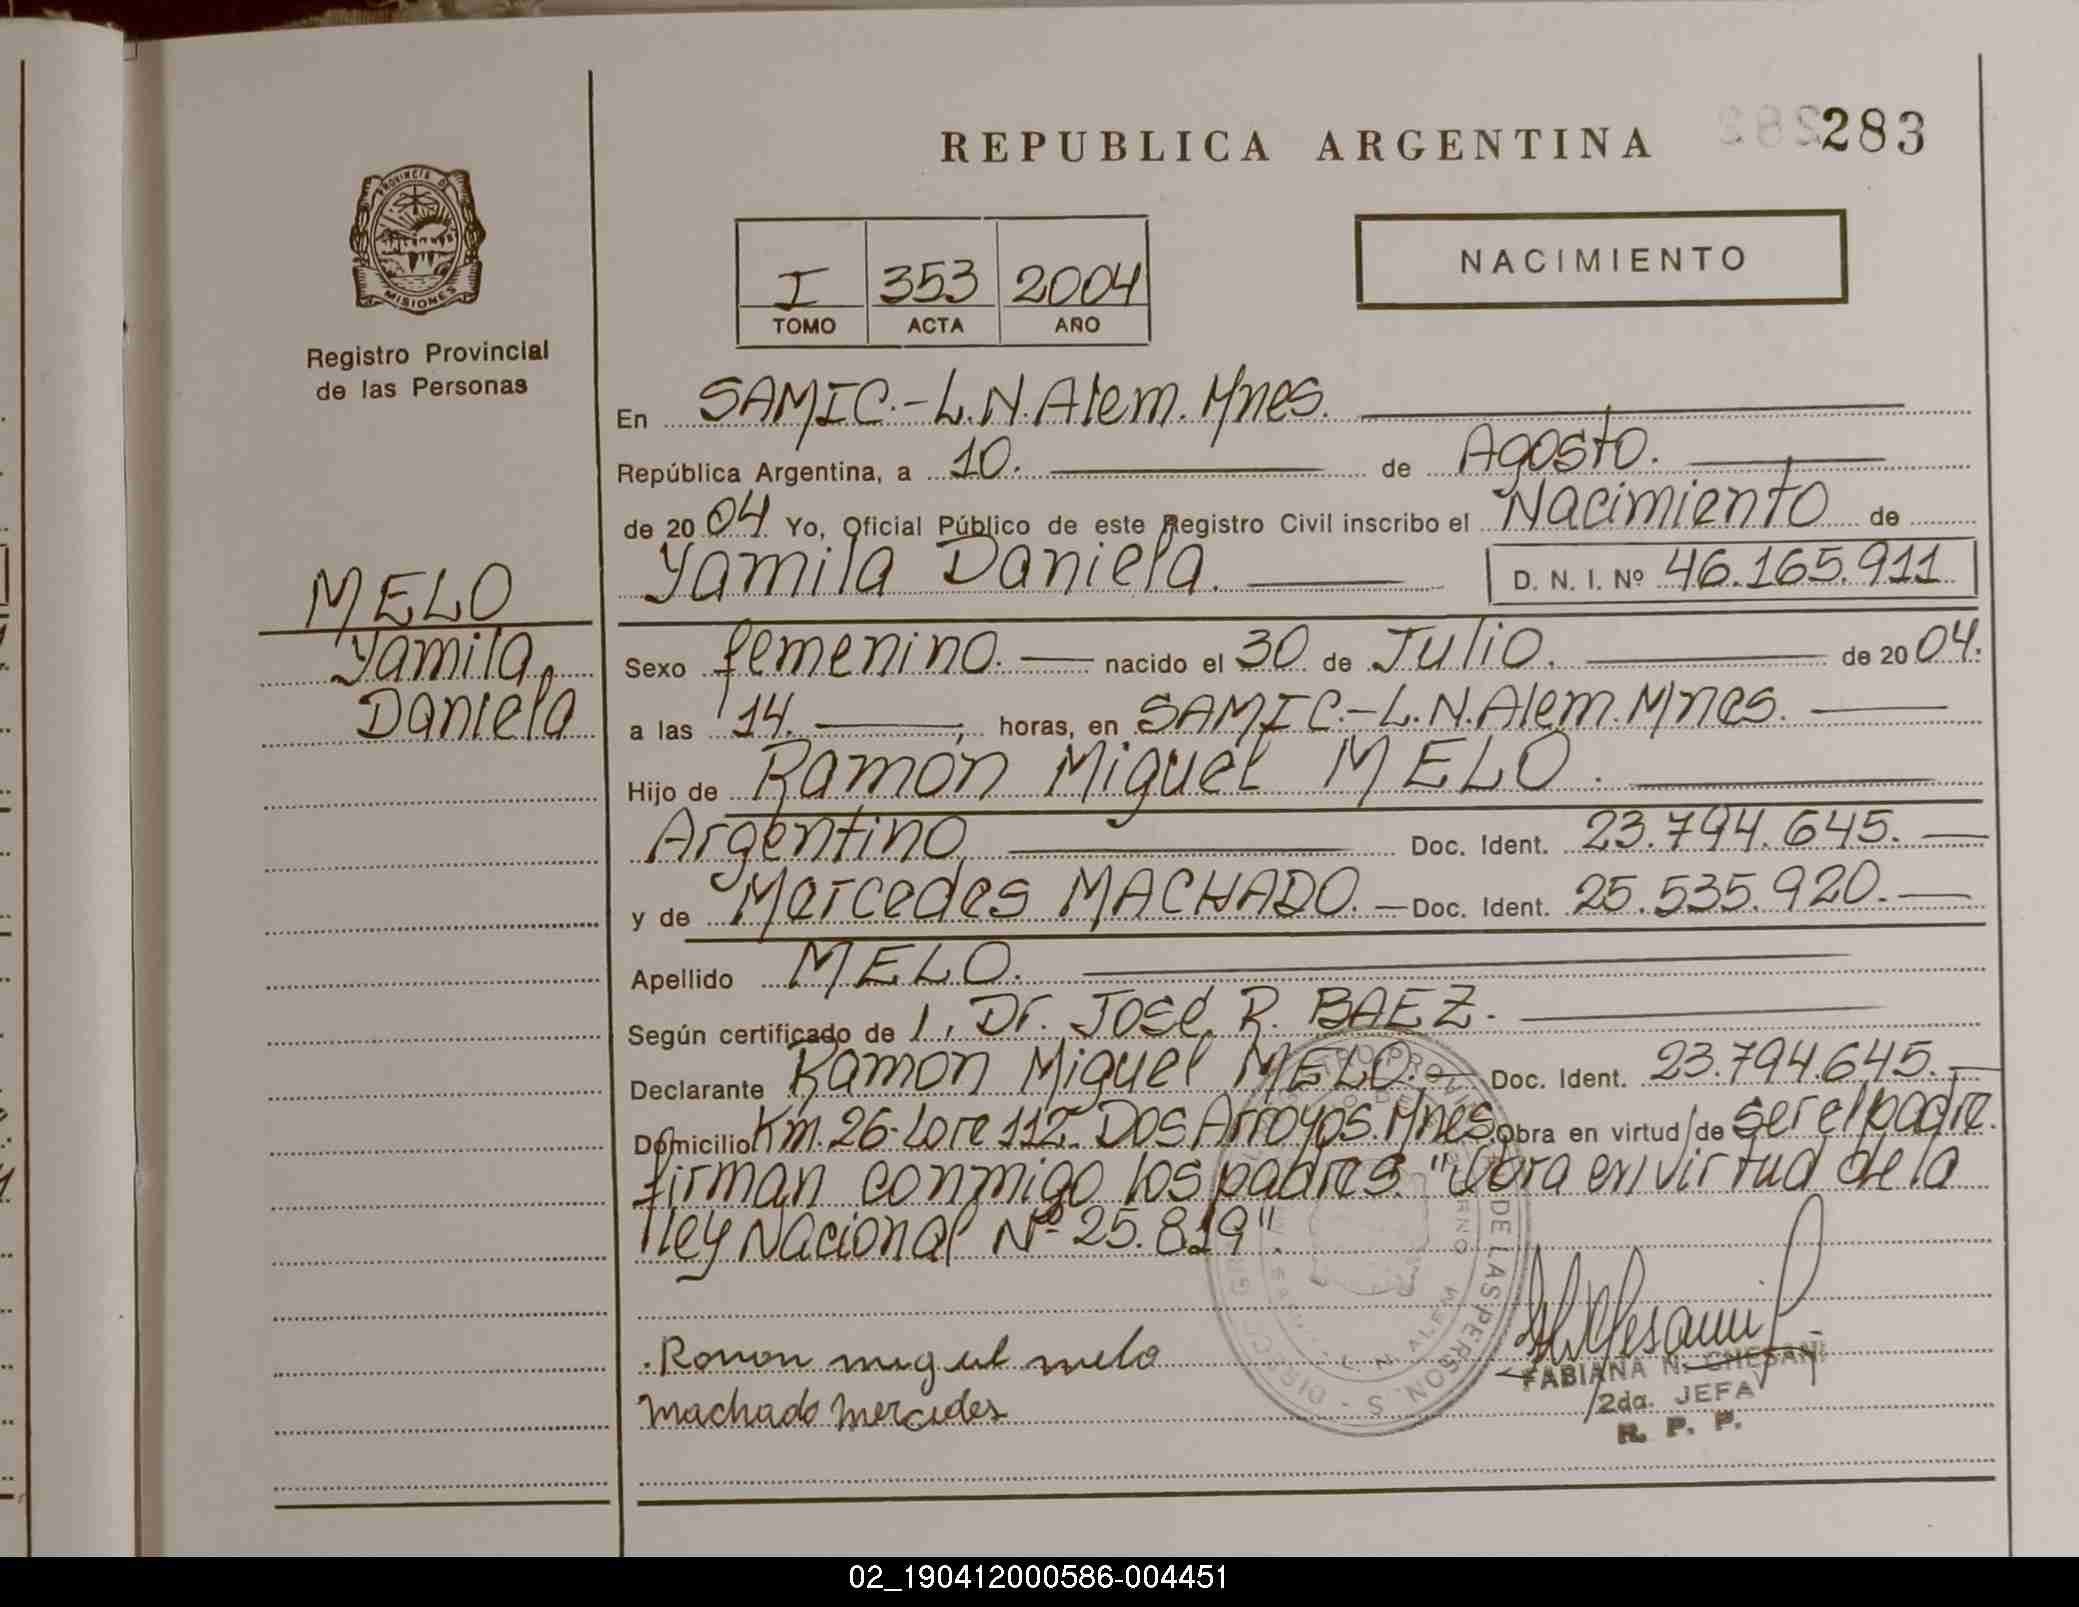 REPUBLICA ARGENTINA
283
PROVINCIA DE
MISIONES
Registro Provincial
de las Personas
NACIMIENTO
I 353 2004
TOMO ACTA AÑO
En SAMIC.-L.N.Alem.Mnes.
República Argentina, a 10. de Agosto.
de 2004 Yo, Oficial Público de este Registro Civil inscribo el Nacimiento de
Yamila Daniela. D. N. I. Nº 46.165.911
MELO
Yamila
Daniela
Sexo femenino. nacido el 30 de Julio. de 2004.
a las 14. horas, en SAMIC.-L.N.Alem.Mnes.
Hijo de Ramon Miguel MELO.
Argentino Doc. Ident. 23.794.645.
y de Mercedes MACHADO. Doc. Ident. 25.535.920.
Apellido MELO.
Según certificado de 1, Dr. José R. BAEZ.
Declarante Ramon Miguel MELO. Doc. Ident. 23.794.645.
Domicilio Km. 26-Lote 112- Dos Arroyos.Mnes. Obra en virtud de ser el padre.
firman conmigo los padres. "Obra en virtud de la
ley Nacional Nº 25.819".
Ramon miguel melo
Machado Mercedes
FABIANA N. CHESANI
2da. JEFA
R. P. P.
DE LAS PERSON. S - L. N. ALEM
02_190412000586-004451